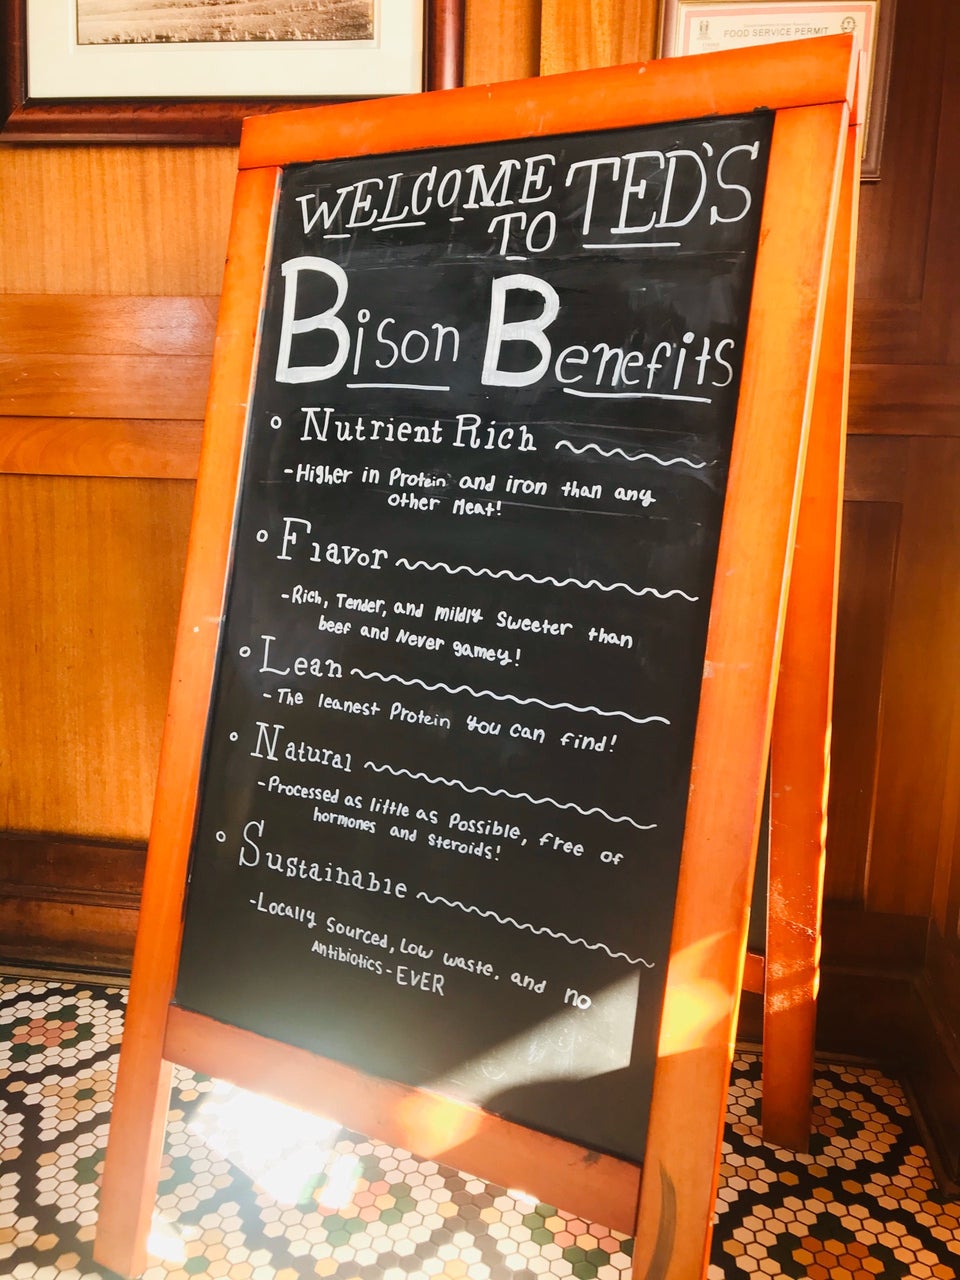 FOOD SERVICE PERMIT
WELCOME TO TED'S
Bison Benefits
Nutrient Rich
-Higher in Protein and iron than any
other Meat!
Flavor
-Rich, Tender, and mildly sweeter than
beef and Never gamey!
Lean
-The leanest Protein you can find!
Natural
-Processed as little as Possible, free of
hormones and steroids!
Sustainable
-Locally sourced, Low waste. and no
Antibiotics-EVER